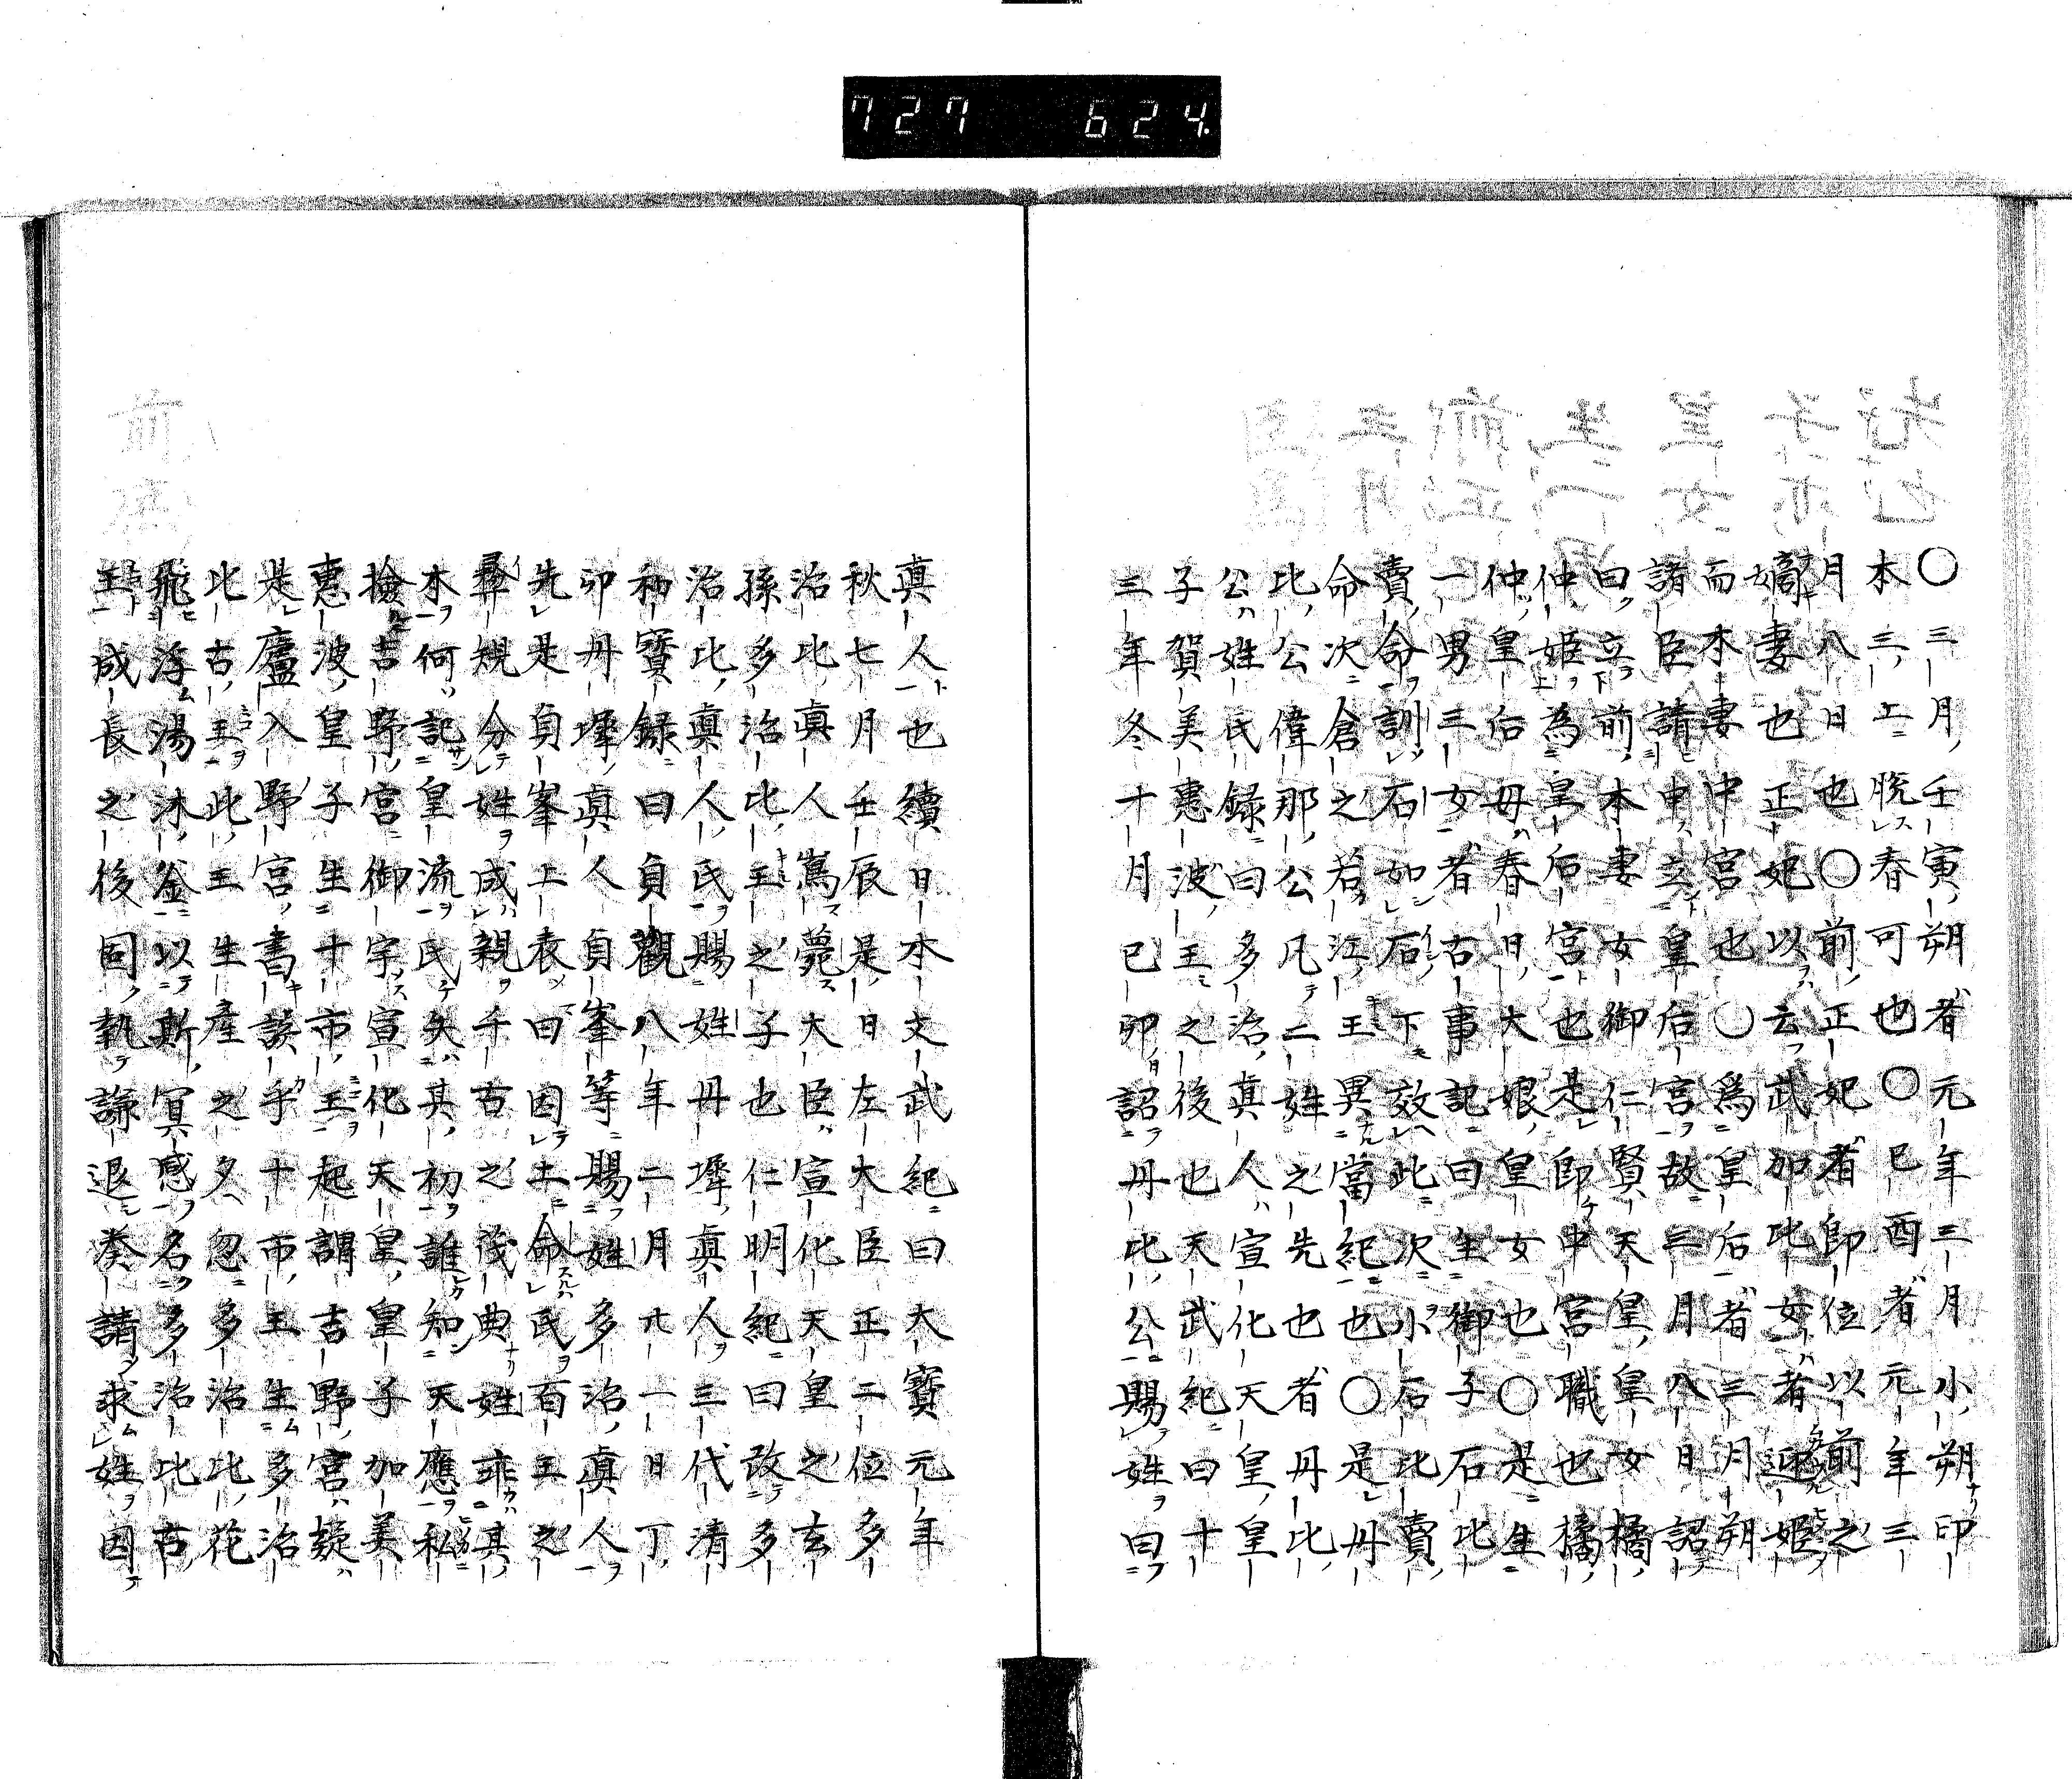 727 624.
〇三月壬寅朔者元年三月小朔印
本三上脱春可也〇己酉者元年三
月八日也〇前正妃者即位以前之
嫡妻也正妃以云武加比女者迎姫
而本妻中宮也〇為皇后者三月朔
諸臣請申立皇后宮故三月八日詔
曰立前本妻女御仁賢天皇皇女橘
仲姫為皇后宮也是即中宮職也橘
仲皇后母春日大娘皇女也〇是生
一男三女者古事記曰生御子石比
賣命訓石如石下效此次小石比賣
命次倉之若江王異當紀也〇是丹
比公偉那公凡二姓之先也者丹比
公姓氏録曰多治真人宣化天皇皇
子賀美惠波王之後也天武紀曰十
三年冬十月己卯詔丹比公賜姓曰
真人也續日本文武紀曰大寶元年
秋七月壬辰是日左大臣正二位多
治比真人嶌薨大臣宣化天皇之玄
孫多治比王之子也仁明紀曰改多
治比真人氏賜姓丹墀真人三代清
和實録曰貞觀八年二月廿一日丁
卯丹墀真人貞峯等賜姓多治真人
先是貞峯上表曰因土命氏百王之
彜規分姓成親千古之茂典姓乖其
木何記皇流氏矢其初誰知天應私
撿吉野宮御宇宣化天皇皇子加美
惠波皇子生十市王起謂吉野宮疑
是廬入野宮書誤乎十市王生多治
比古王此王生産之夕忽多治比花
飛浮湯沐釜以斯冥感名多治比古
王成長之後固執謙退奏請求姓因